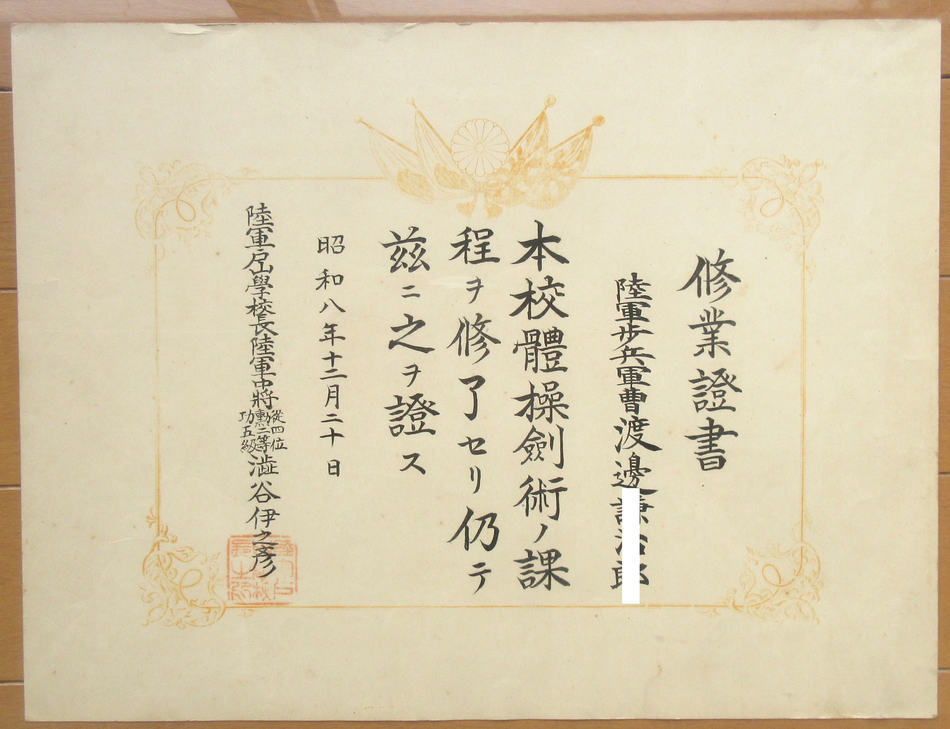 修業證書
陸軍歩兵軍曹渡邊
本校體操劍術ノ課
程ヲ修了セリ仍テ
茲ニ之ヲ證ス
昭和八年十二月二十日
陸軍戸山學校長陸軍中將從四位勳二等功五級澁谷伊之彦